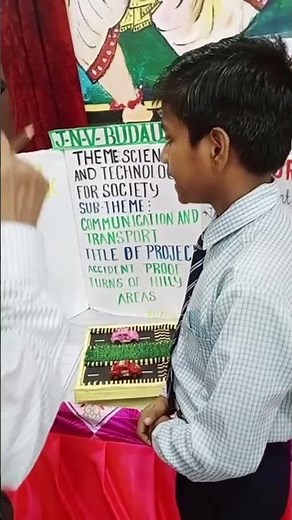 J-N-V- BUDAU
THEME: SCIEN
AND TECHNOLO
FOR SOCIETY
SUB-THEME:
COMMUNICATION AND
TRANSPORT
TITLE OF PROJEC
ACCIDENT PROOF
TURNS OF HILLY
AREAS